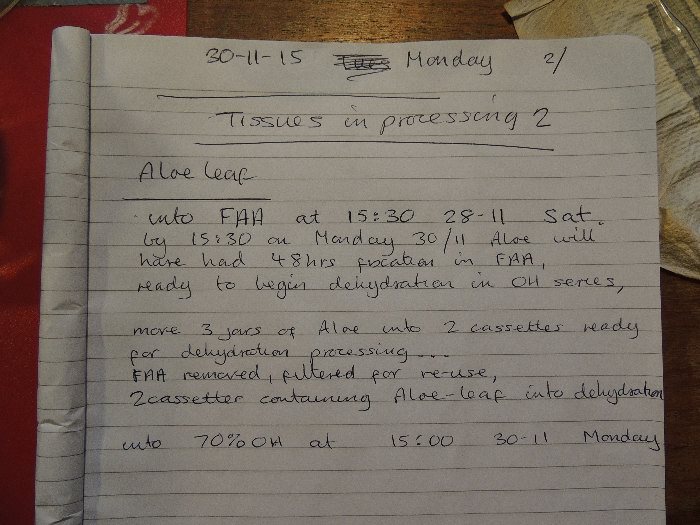 30-11-15 Tues Monday 2/
Tissues in processing 2
Aloe leaf
into FAA at 15:30 28-11 Sat.
by 15:30 on Monday 30/11 Aloe will
have had 48hrs fixation in FAA,
ready to begin dehydration in OH series,
move 3 jars of Aloe into 2 cassettes ready
for dehydration processing...
FAA removed, filtered for re-use,
2 cassettes containing Aloe-leaf into dehydration
into 70% OH at 15:00 30-11 Monday